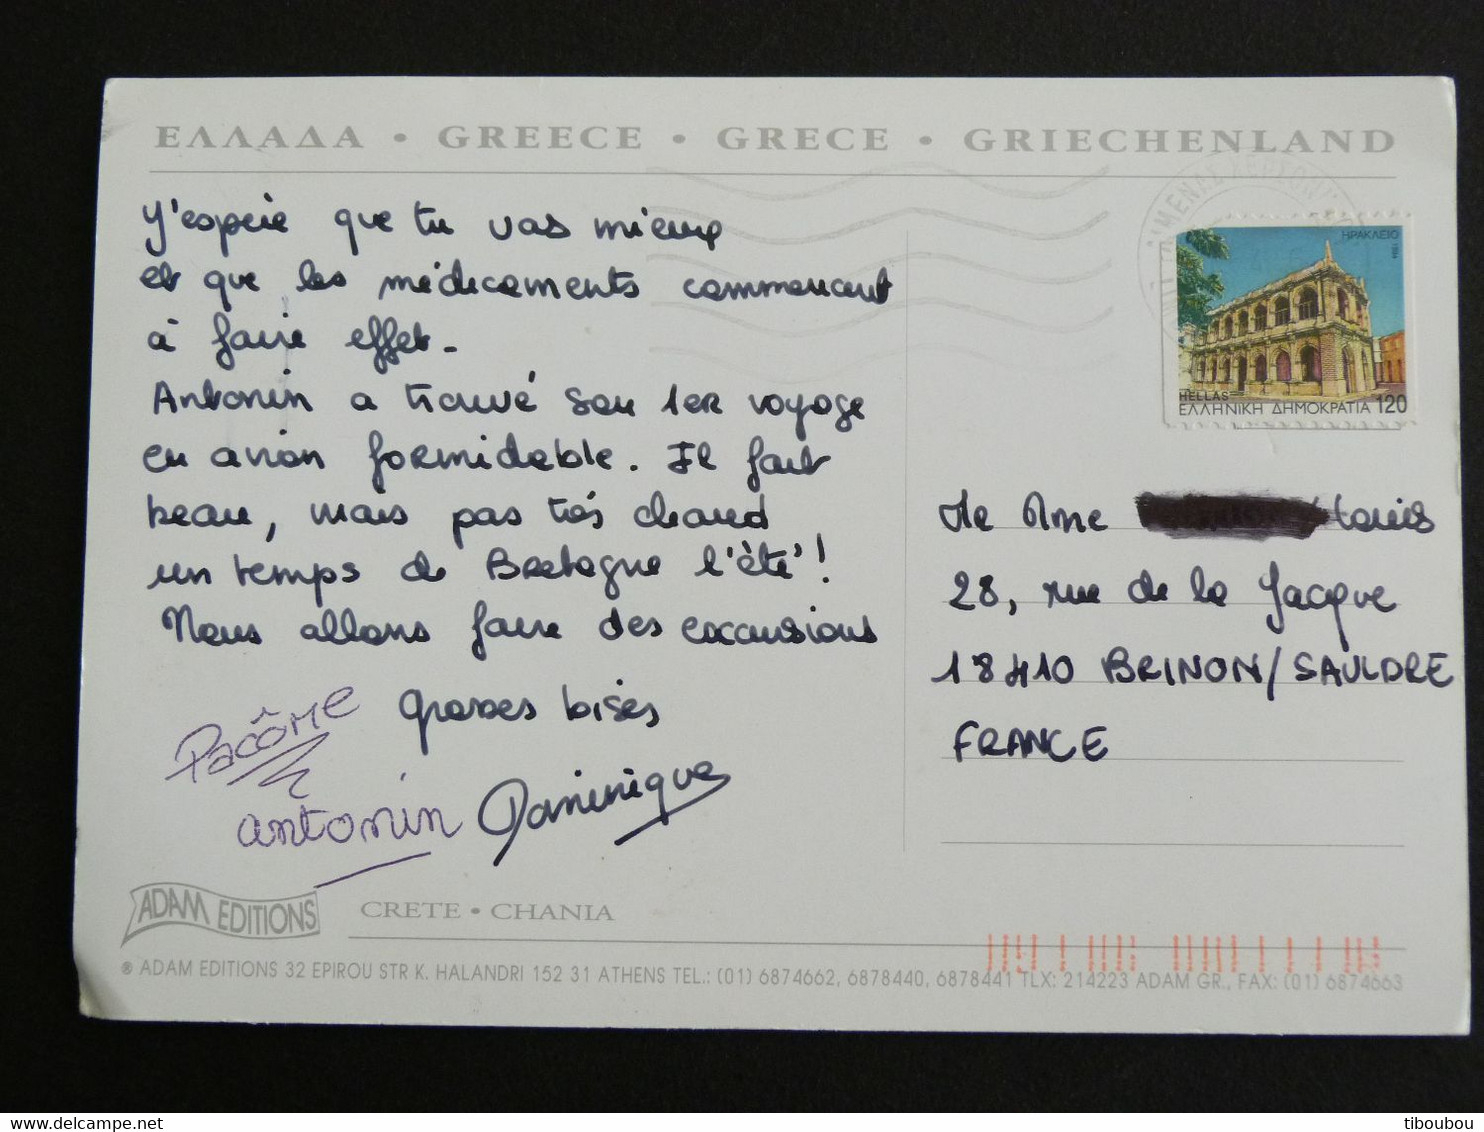 ΕΛΛΑΔΑ • GREECE • GRECE • GRIECHENLAND
J'espère que tu vas mieux
et que les médicaments commencent
à faire effet.
Antonin a trouvé son 1er voyage
en avion formidable. Il fait
beau, mais pas très chaud
un temps de Bretagne l'été !
Nous allons faire des excursions
Grosses bises
Pacôme
antonin
Dominique
ΗΡΑΚΛΕΙΟ
1994
HELLAS
ΕΛΛΗΝΙΚΗ ΔΗΜΟΚΡΑΤΙΑ 120
Me Mme Louis
28, rue de la Jacque
18410 BRINON/SAULDRE
FRANCE
ADAM EDITIONS
CRETE • CHANIA
® ADAM EDITIONS 32 EPIROU STR K. HALANDRI 152 31 ATHENS TEL.: (01) 6874662, 6878440, 6878441 TLX: 214223 ADAM GR., FAX: (01) 6874663
delcampe.net
tiboubou